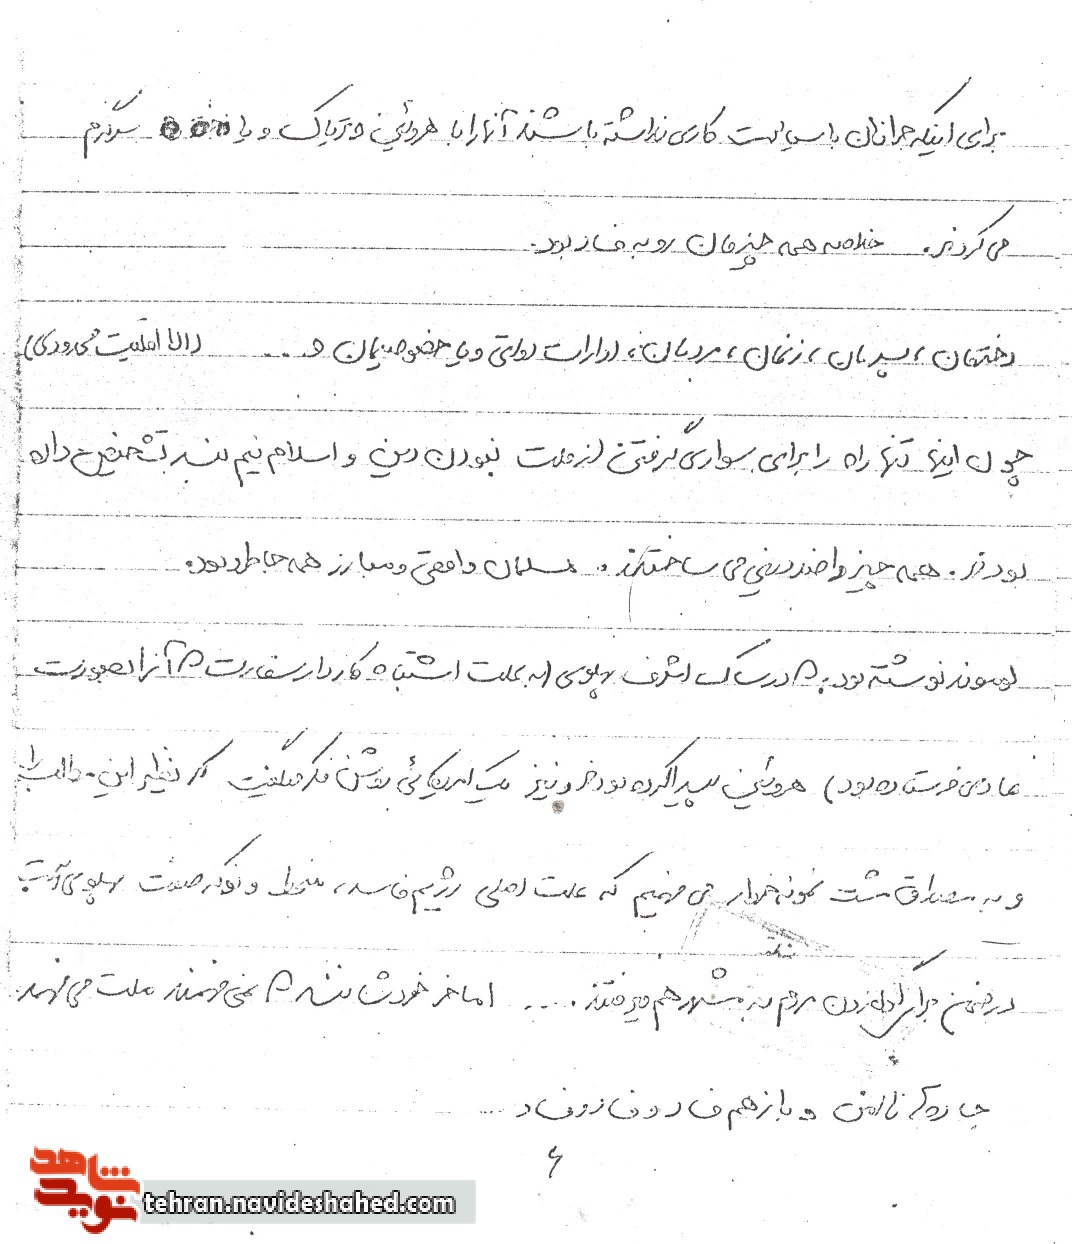 برای اینکه جوانان با سیاست کاری نداشته باشند آنها را با هروئین و تریاک و یا سرگرم
می کردند. خلاصه همه چیزمان رو به فساد بود.
دخترمان، پسرمان، زنمان، مردمان، ادارات دولتی و یا خصوصیمان و .... (الا اقلیت محدودی)
چون اینها تنها راه را برای سواری گرفتن از ملت نبودن دین و اسلام تشخیص داده
بودند. همه چیز را ضد دینی می ساختند. مسلمان واقعی و مبارز همه جا طرد بود.
لوموند نوشته بود. در ساک اشرف پهلوی (به علت اشتباه کاردار سفارت آنرا بصورت
عادی فرستاده بود) هروئین پیدا کرده بودند و نیز یک امریکائی روشن فکر میگفت که نظیر این مطالب را
و به مصداق مشت نمونه خروار می فهمیم که علت اصلی رژیم فاسد، منحط و نوکر صفت پهلوی است
در ضمن برای گول زدن مردم به مشهد هم میرفتند .... اما خر خودشانند نمی فهمند ملت می فهمد
و باز هم فساد و فساد و فساد
۶
شاهد
نوید
tehran.navideshahed.com